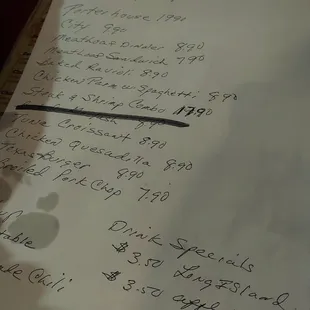 Porterhouse 17.90
City 9.90
Meatloaf Dinner 8.90
Meatloaf Sandwich 7.90
Baked Ravioli 8.90
Chicken Parm w Spaghetti 8.90
Steak & Shrimp Combo 17.90
8.90
Tuna Croissant 8.90
Chicken Quesadilla 8.90
Texas Burger 8.90
Broiled Pork Chop 7.90
Drink Specials
$3.50 Long Island
$3.50
table
Chili